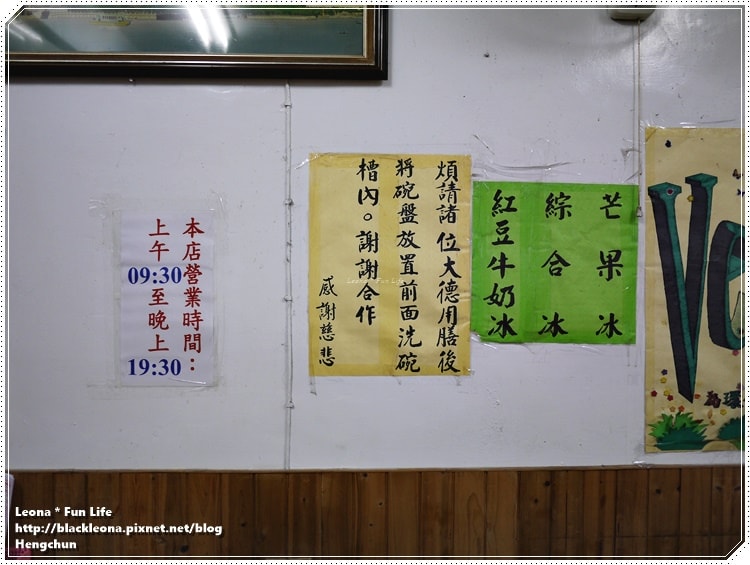 本店營業時間：
上午
09:30至晚上
19:30
煩請諸位大德用膳後
將碗盤放置前面洗碗
槽內。謝謝合作
感謝慈悲
芒果冰
綜合冰
紅豆牛奶冰
Ve
為環
Leona * Fun Life
Leona * Fun Life
http://blackleona.pixnet.net/blog
Hengchun